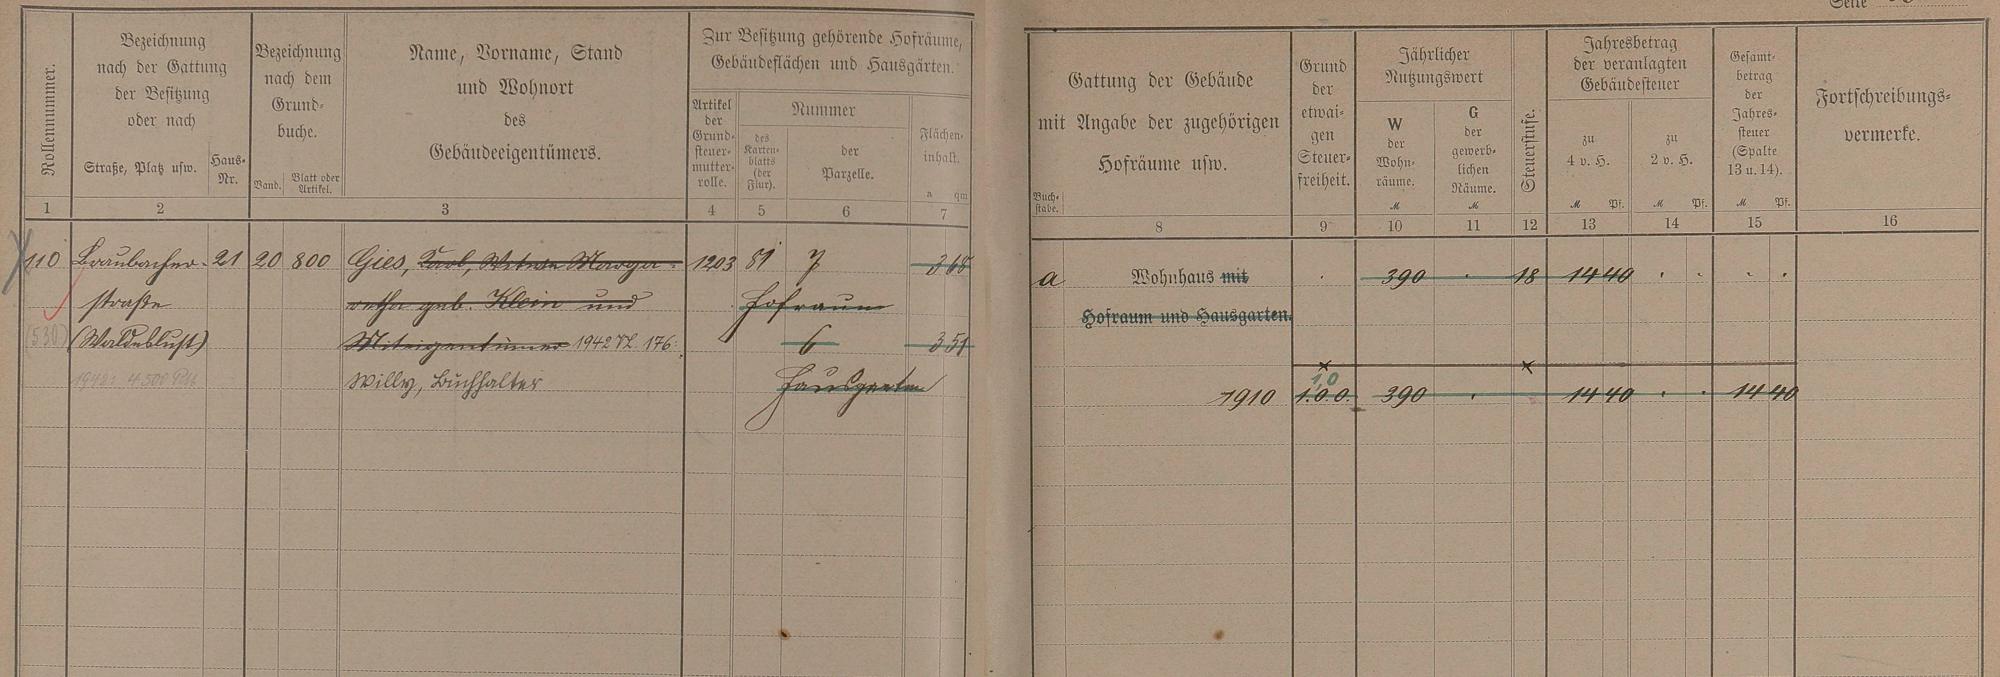 Seite
Rollennummer.
Bezeichnung
nach der Gattung
der Besitzung
oder nach
Straße, Platz usw.
Haus-
Nr.
Bezeichnung
nach dem
Grund-
buche.
Band.
Blatt oder
Artikel.
Name, Vorname, Stand
und Wohnort
des
Gebäudeeigentümers.
Zur Besitzung gehörende Hofräume,
Gebäudeflächen und Hausgärten.
Artikel
der
Grund-
steuer-
mutter-
rolle.
Nummer
des
Karten-
blatts
(der
Flur).
der
Parzelle.
Flächen-
inhalt.
a qm
1 2 3 4 5 6 7
110 Braubacher- 21 20 800 Gies, Karl, Witwe Marga- 1203 81 7 368
straße retha geb. Klein und Hofraum
(530) (Waldeslust) Miteigentümer 1942 VL. 176: 6 351
1942: 4500 Willy, Buchhalter Hausgarten
Buch-
stabe.
Gattung der Gebäude
mit Angabe der zugehörigen
Hofräume usw.
Grund
der
etwai-
gen
Steuer-
freiheit.
Jährlicher
Nutzungswert
W
der
Wohn-
räume.
M
G
der
gewerb-
lichen
Räume.
M
Steuerstufe.
Jahresbetrag
der veranlagten
Gebäudesteuer
zu
4 v. H.
M Pf.
zu
2 v. H.
M Pf.
Gesamt-
betrag
der
Jahres-
steuer
(Spalte
13 u. 14).
M Pf.
Fortschreibungs-
vermerke.
8 9 10 11 12 13 14 15 16
a Wohnhaus mit 390 18 14 40
Hofraum und Hausgarten.
10
1910 1.0.0. 390 14 40 14 40